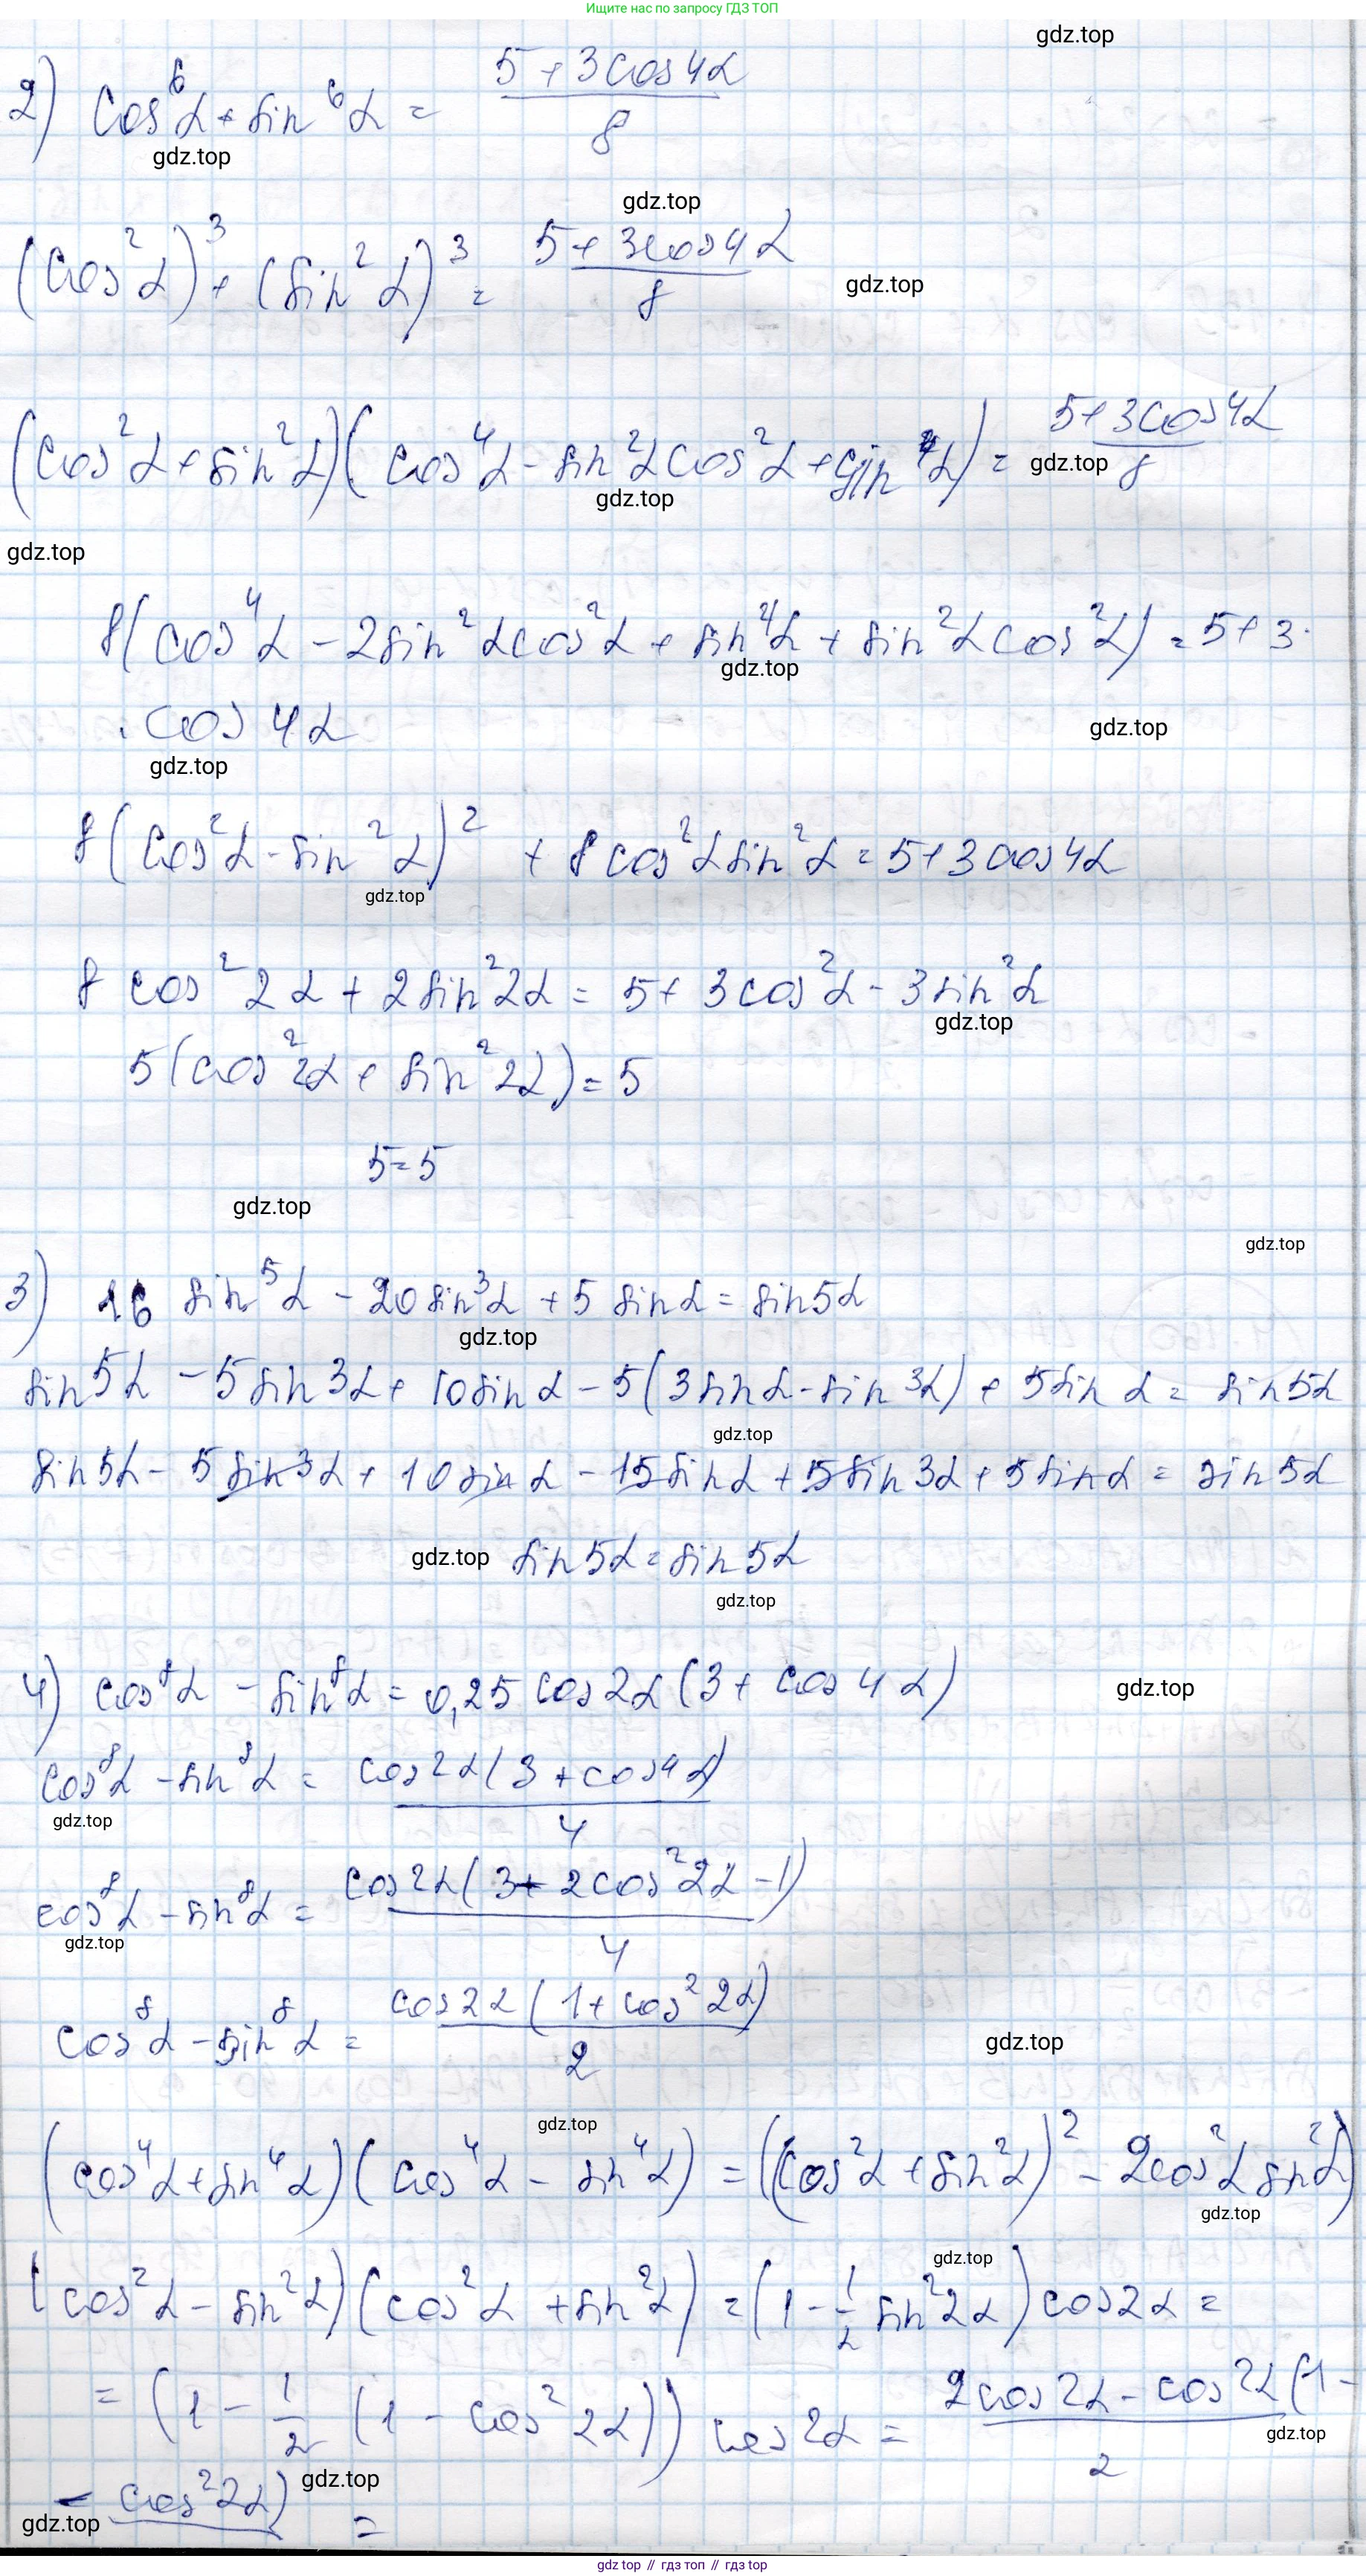 Ищите нас по запросу ГДЗ ТОП
gdz.top
2) cos⁶α + sin⁶α = (5 + 3cos4α)/8
gdz.top
gdz.top
(cos²α)³ + (sin²α)³ = (5 + 3cos4α)/8
gdz.top
(cos²α + sin²α)(cos⁴α - sin²αcos²α + sin⁴α) = (5 + 3cos4α)/8
gdz.top
gdz.top
gdz.top
8(cos⁴α - 2sin²αcos²α + sin⁴α + sin²αcos²α) = 5 + 3·
gdz.top
·cos4α
gdz.top
gdz.top
8(cos²α - sin²α)² + 8cos²αsin²α = 5 + 3cos4α
gdz.top
8cos²2α + 2sin²2α = 5 + 3cos²α - 3sin²α
gdz.top
5(cos²2α + sin²2α) = 5
5 = 5
gdz.top
gdz.top
3) 16 sin⁵α - 20sin³α + 5sinα = sin5α
gdz.top
sin5α - 5sin3α + 10sinα - 5(3sinα - sin3α) + 5sinα = sin5α
gdz.top
sin5α - 5sin3α + 10sinα - 15sinα + 5sin3α + 5sinα = sin5α
gdz.top
sin5α = sin5α
gdz.top
4) cos⁸α - sin⁸α = 0,25cos2α(3 + cos4α)
gdz.top
cos⁸α - sin⁸α = cos2α(3 + cos4α)/4
gdz.top
cos⁸α - sin⁸α = cos2α(3 + 2cos²2α - 1)/4
gdz.top
cos⁸α - sin⁸α = cos2α(1 + cos²2α)/2
gdz.top
gdz.top
(cos⁴α + sin⁴α)(cos⁴α - sin⁴α) = ((cos²α + sin²α)² - 2cos²αsin²α)
gdz.top
gdz.top
(cos²α - sin²α)(cos²α + sin²α) = (1 - 1/2 sin²2α)cos2α =
= (1 - 1/2 (1 - cos²2α)) cos2α = (2cos2α - cos2α(1 -
gdz.top
- cos²2α) =
gdz.top
gdz.top
gdz top // гдз топ // gdz top